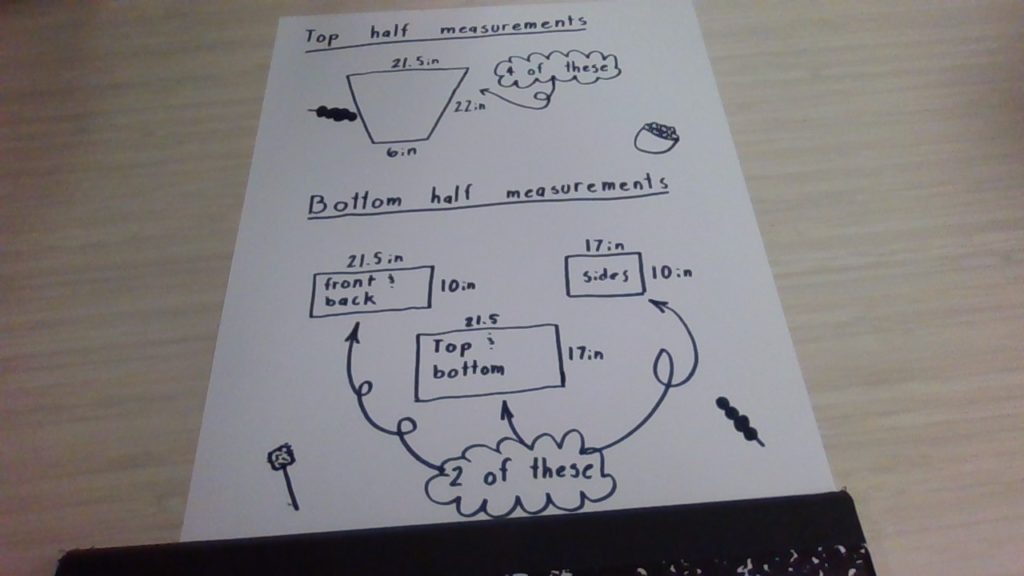 Top half measurements
21.5in
4 of these
22in
6in
Bottom half measurements
21.5in
front &
back
10in
17in
sides
10in
21.5
Top &
bottom
17in
2 of these